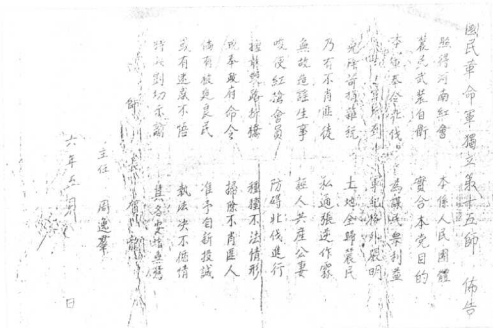 國民革命軍獨立第十五師 佈告
照得河南紅會 本係人民團體
農民武裝自衛 實合本黨目的
本師奉令北伐 為謀民眾利益
軍紀格外嚴明
免除苛捐雜稅 土地全歸農民
乃有不肖匪徒 私通張逆作霖
無故造謠生事 誣人共產公妻
唆使紅槍會員 防碍北伐進行
種種不法情形
現奉政府命令 掃除不肖匪人
倘有被脅良民 准予自新投誠
或有違或不悟 執法決不徇情
特此剴切示諭 其各妥慎無違
師長 賀龍
主任 周逸羣
六年五月 日